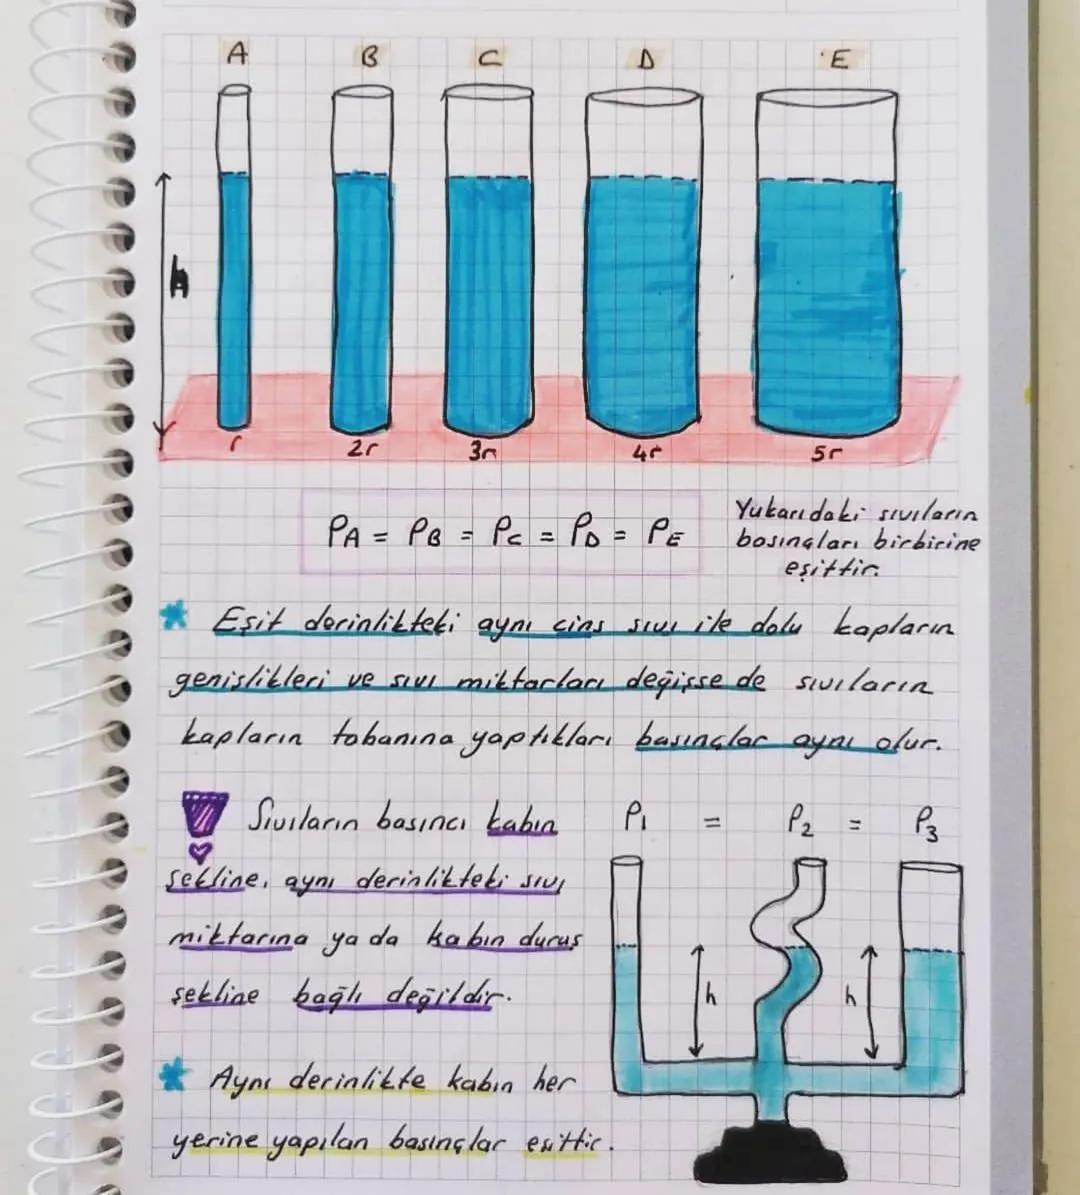 A B C D E
h
r 2r 3r 4r 5r
PA = PB = PC = PD = PE
Yukarıdaki sıvıların
basınçları birbirine
eşittir.
* Eşit derinlikteki aynı cins sıvı ile dolu kapların
genişlikleri ve sıvı miktarları değişse de sıvıların
kapların tabanına yaptıkları basınçlar aynı olur.
Sıvıların basıncı kabın
şekline, aynı derinlikteki sıvı
miktarına ya da kabın duruş
şekline bağlı değildir.
P1 = P2 = P3
h h
* Aynı derinlikte kabın her
yerine yapılan basınçlar eşittir.